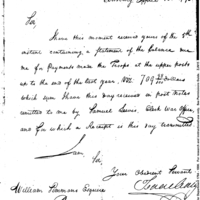 Sir,
I have this moment received yours of the 9th
instant containing a statement of the balance due
me for Payments made the Troops at the upper posts
up to the end of the last year, Viz. 789 Dollars
which sum I have this day received in post notes
remitted to me by Samuel Lewis, Clerk War Office
and for which a Receipt is this day transmitted
I am Sir,
Your Obedient Servant
William Simmons Esquire